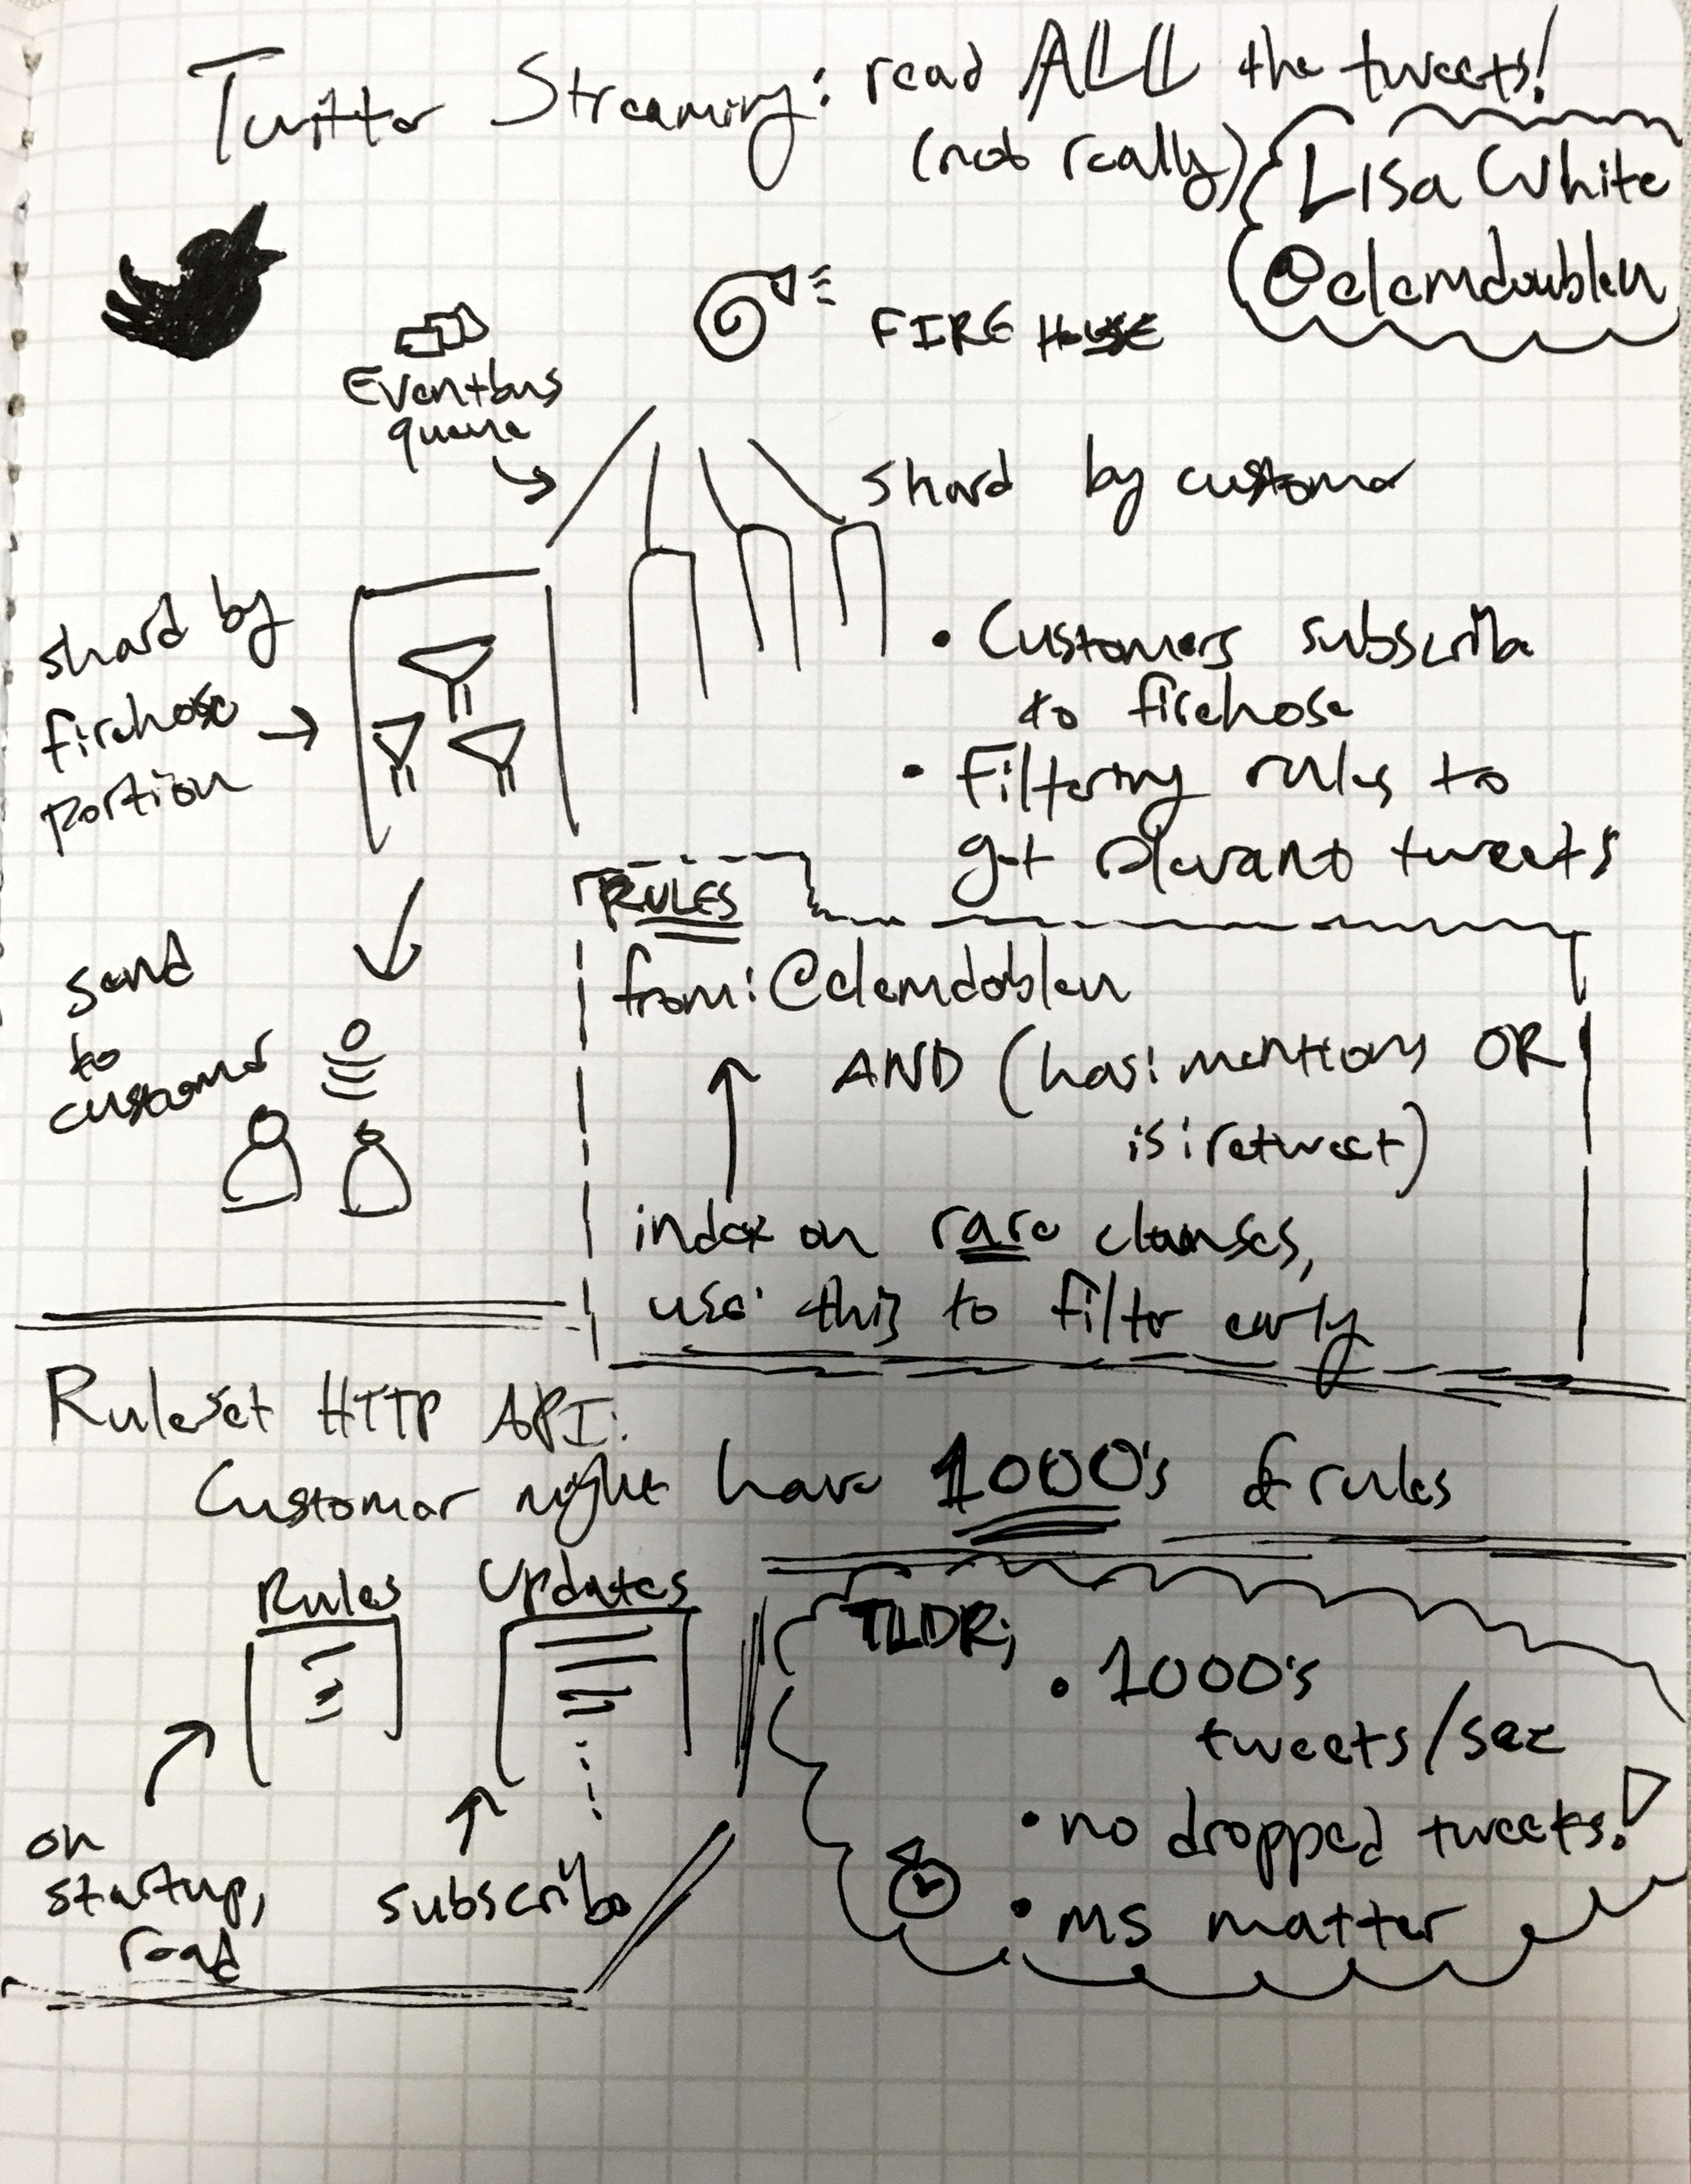 Twitter Streaming: read ALL the tweets!
(not really)
Lisa White
@clemdoubleu
FIRE HOSE
Eventbus
queue
shard by customer
shard by
firehose
portion
• Customers subscribe
to firehose
• Filtering rules to
get relevant tweets
send
to
customer
RULES
from:@clemdobleu
AND (has:mentions OR
is:retweet)
index on rare clauses,
use this to filter early
Ruleset HTTP API:
Customer might have 1000's of rules
Rules
Updates
on
startup,
read
subscribe
TLDR;
• 1000's
tweets/sec
• no dropped tweets!
• ms matter